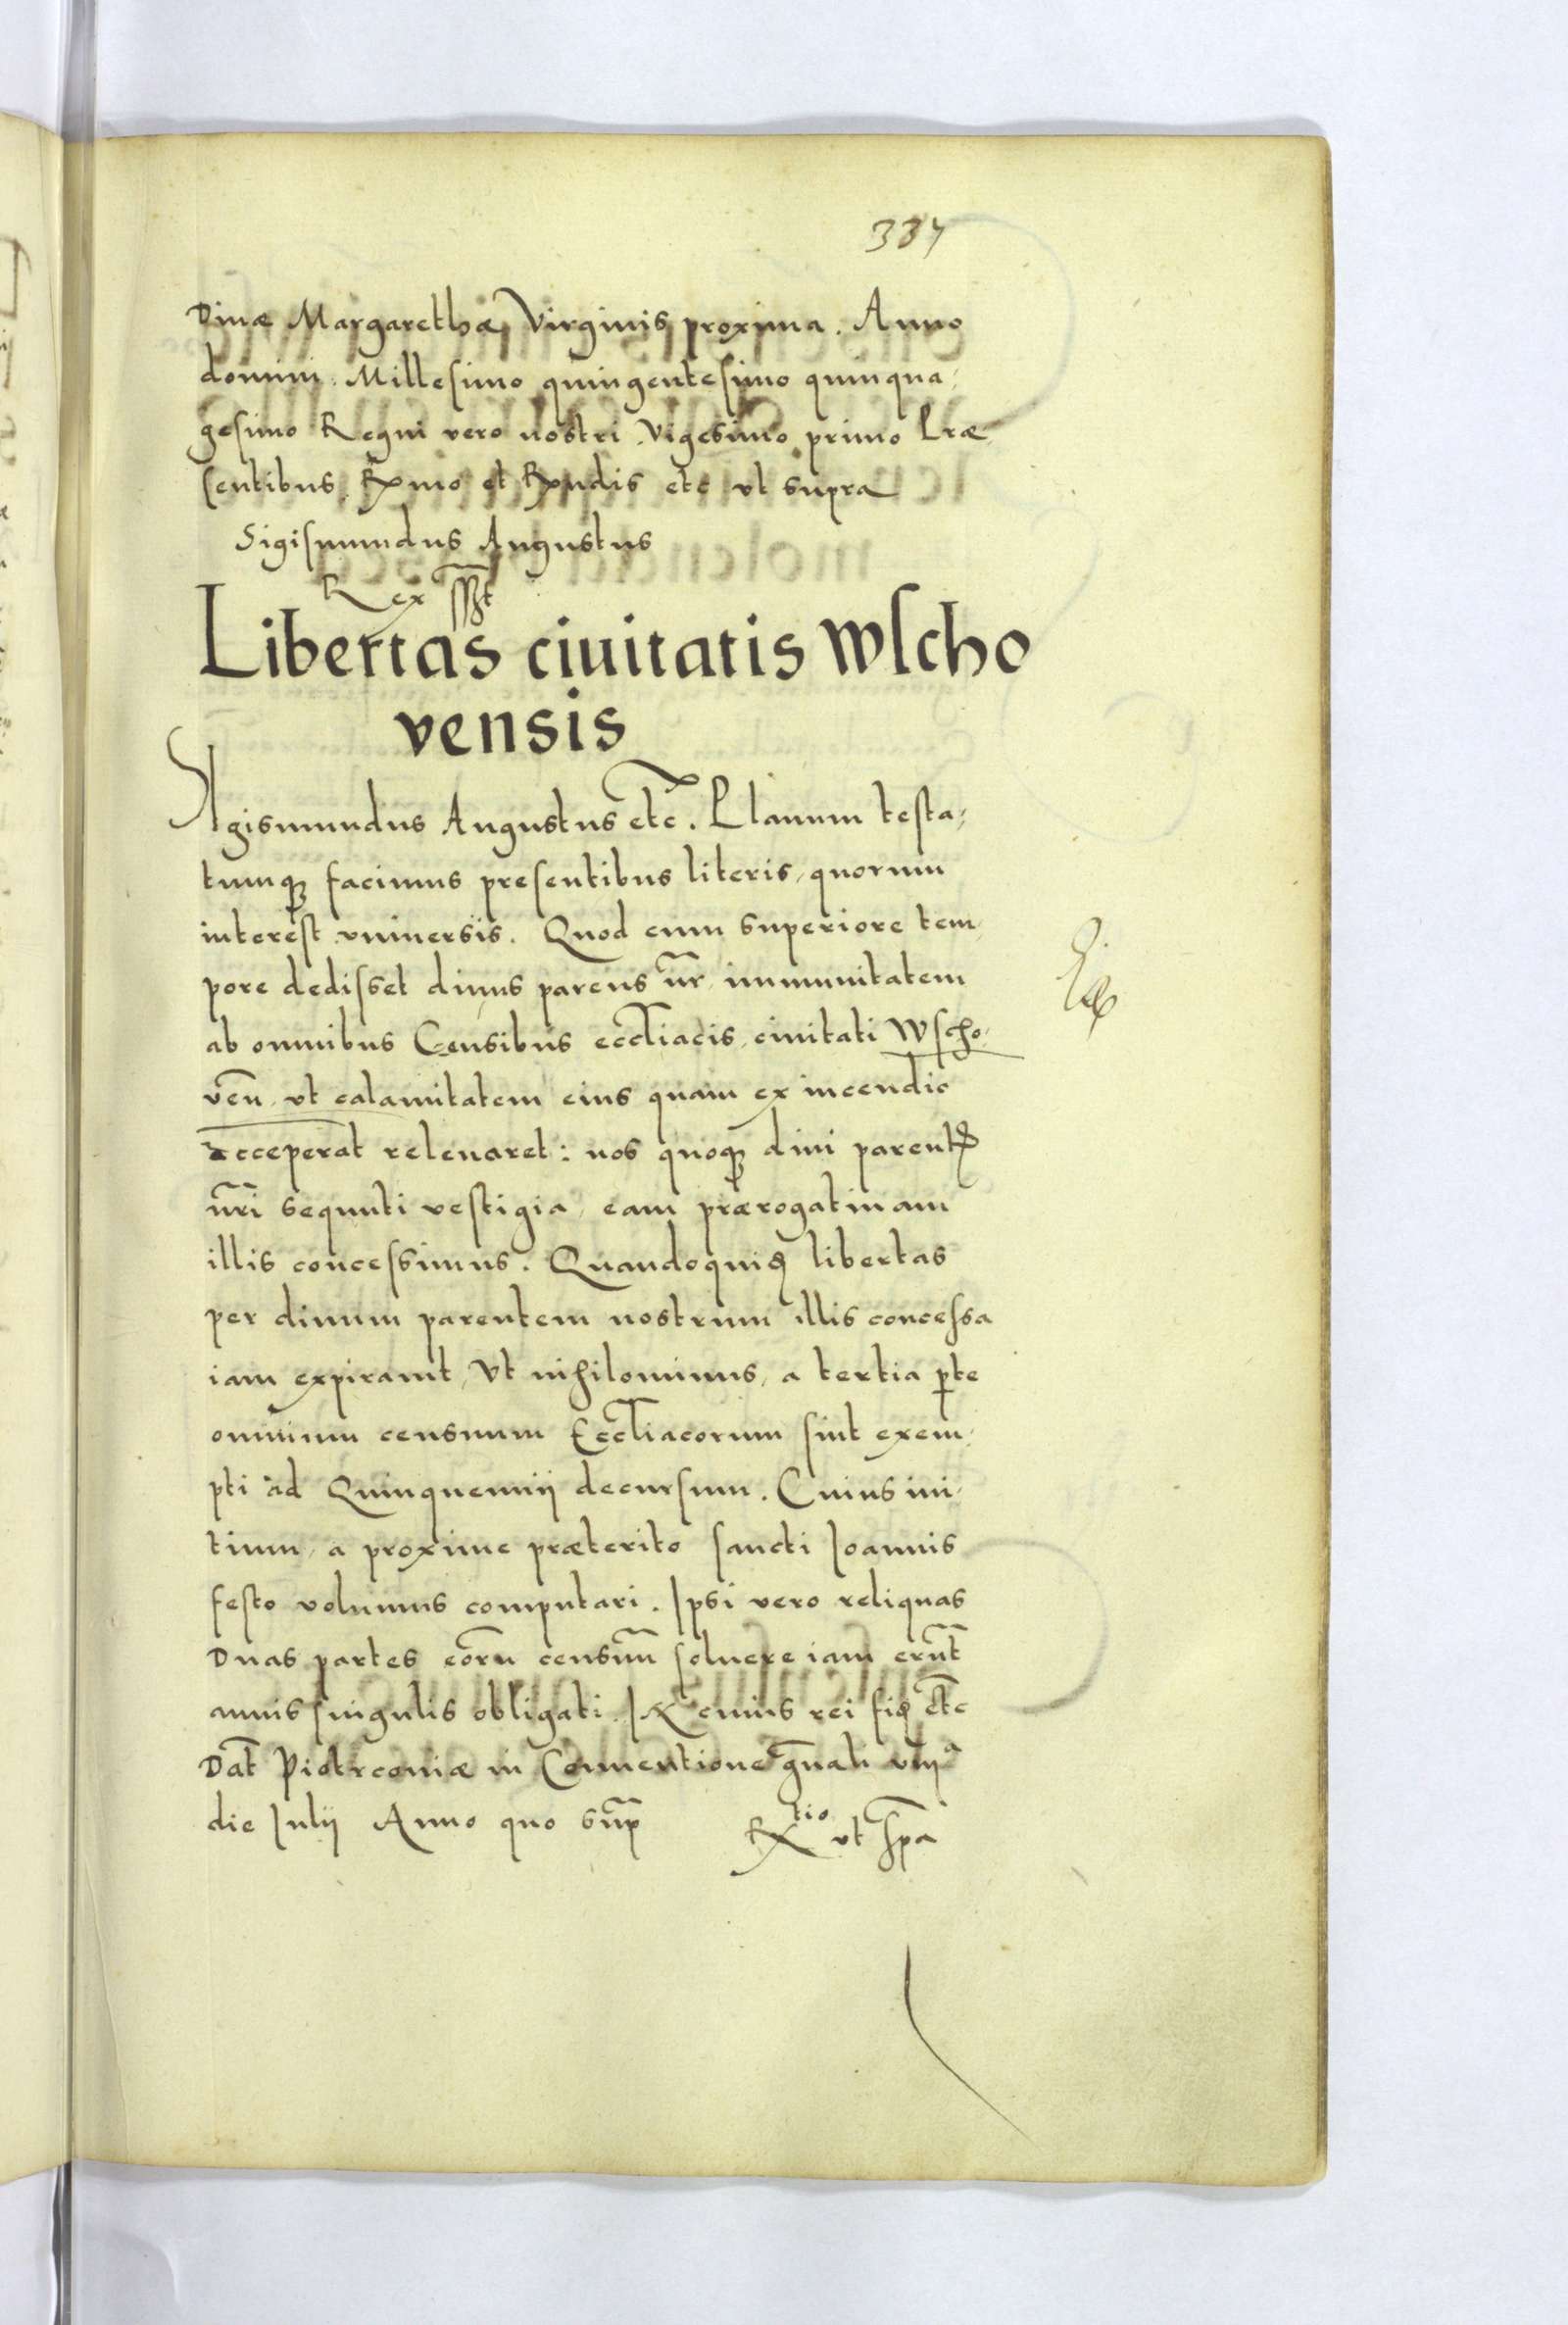 337
Diuæ Margarethæ Virginis proxima. Anno
domini. Millesimo quingentesimo quinqua-
gesimo Regni vero nostri Vigesimo primo Præ-
sentibus Rxmo et Rxndis etc vt supra
Sigismundus Augustus
Rex sst
Libertas ciuitatis Wscho
vensis
Sigismundus Augustus etc. Planum testa-
tumq3 facimus presentibus literis, quorum
interest vniuersis. Quod cum superiore tem-
pore dedisset diuus parens nr̃ immunitatem
ab omnibus Censibus eccl̃iacis, ciuitati Wscho-
ven̄ vt calamitatem eius quam ex incendio
acceperat releuaret: nos quoq3 diui parentis
nr̃i sequuti vestigia, eam prærogatiuam
illis concessimus. Quandoquid libertas
per diuum parentem nostrum illis concessa
iam expirauit, Vt nihilominus, a tertia p̱te
omnium censuum Eccl̃iacorum sint exem-
pti ad Quinquennij decursum. Cuius ini-
tium, a proxime præterito sancti Ioannis
festo volumus computari. Ipsi vero reliquas
Duas partes eor̃u censuũ soluere iam erũt
annis singulis obligati. IN cuius rei fid etc̃
Dat̃ Piotrconiæ in Conuentione gñali viijª
die Iulij Anno quo sup̃
Rxtio vt sp̃a